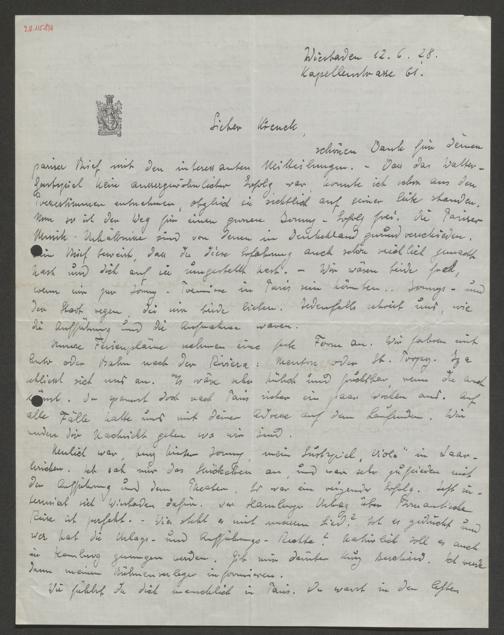 Wiesbaden 12.6.28.
Kapellenstrasse 61.
Lieber Krenek,
schönen Dank für Deinen
pariser Brief mit den interessanten Mitteilungen. - Dass das
Lustspiel kein aussergewöhnlicher Erfolg war, konnte ich schon aus den
Pressestimmen entnehmen, obgleich sie sichtlich auf seiner Seite standen.
Nun so ist der Weg für einen grossen Jonny-Erfolg frei. Die Pariser
Musik-Verhältnisse sind von denen in Deutschland grundverschieden.
Dein Brief beweist, dass Du diese Erfahrung auch schon reichlich gemacht
hast und Dich auf sie umgestellt hast. - Wir wären beide froh,
wenn wir zur Jonny-Première in Paris sein könnten. Jonnys- und
der Stadt wegen, die wir beide lieben. Jedenfalls schreib uns, wie
die Aufführung und die Aufnahme waren.
Unsere Ferienpläne nehmen eine gute Form an. Wir fahren mit
Auto oder Bahn nach der Riviera: Mentone oder St. Tropez.
schliesst sich uns an. Es wäre sehr hübsch und wenn Du auch
kämst. Du spannst doch nach Paris sicher ein paar Wochen aus. Auf
alle Fälle halte uns mit Deiner Adresse auf dem Laufenden. Wir
werden Dir Nachricht geben wo wir sind.
Neulich war, hinter Jonny, mein Lustspiel in Saar-
brücken. Ich sah nur das an und war sehr zufrieden mit
der Aufführung und dem Theater. Es war ein Erfolg.
sich Wiesbaden dafür. Der Hamburger Verlag über
Reise ist perfekt. - Wie steht es mit unserem Lied? Ist es gedruckt und
wer hat die Verlags- und Aufführungs-Rechte? Natürlich soll es auch
in Hamburg gesungen werden. Gib mir darüber kurz Bescheid. Ich werde
dann meinen Bühnenverleger informieren.
Wie fühlst Du Dich menschlich in Paris. Du warst in den